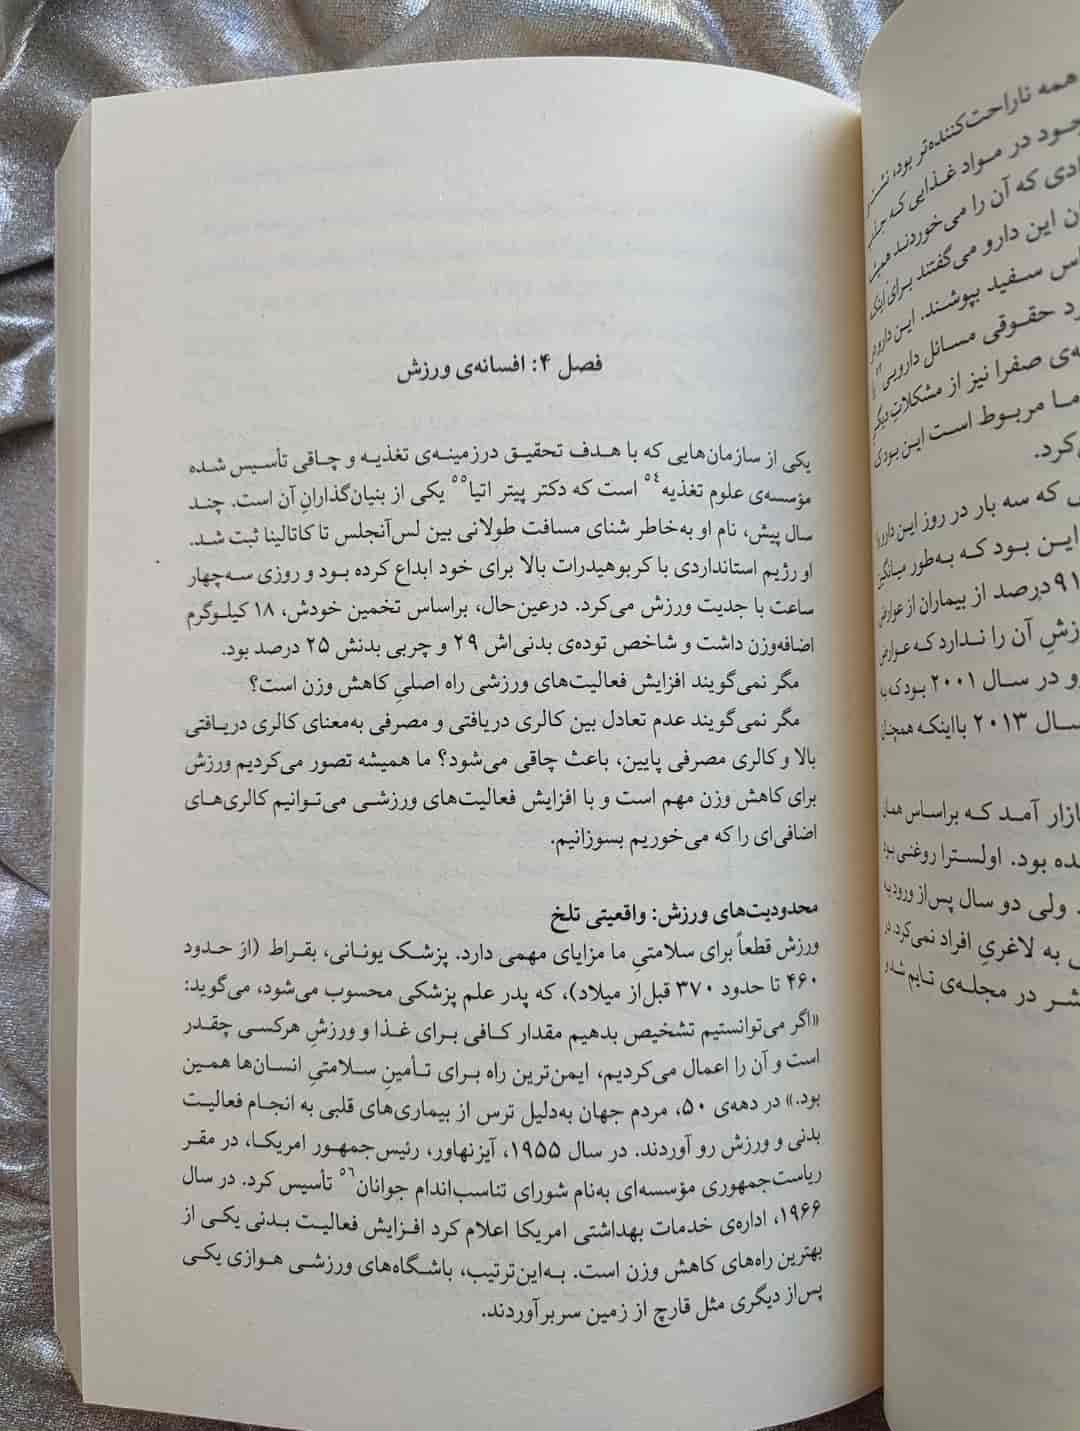 فصل ۴: افسانه‌ی ورزش
یکی از سازمان‌هایی که با هدف تحقیق درزمینه‌ی تغذیه و چاقی تأسیس شده
مؤسسه‌ی علوم تغذیه۵۴ است که دکتر پیتر اتیا۵۵ یکی از بنیان‌گذارانِ آن است. چند
سال پیش، نام او به‌خاطر شنای مسافت طولانی بین لس‌آنجلس تا کاتالینا ثبت شد.
او رژیم استانداردی با کربوهیدرات بالا برای خود ابداع کرده بود و روزی سه‌چهار
ساعت با جدیت ورزش می‌کرد. درعین‌حال، براساس تخمین خودش، ۱۸ کیلوگرم
اضافه‌وزن داشت و شاخص توده‌ی بدنی‌اش ۲۹ و چربی بدنش ۲۵ درصد بود.
مگر نمی‌گویند افزایش فعالیت‌های ورزشی راه اصلیِ کاهش وزن است؟
مگر نمی‌گویند عدم تعادل بین کالری دریافتی و مصرفی به‌معنای کالری دریافتی
بالا و کالری مصرفی پایین، باعث چاقی می‌شود؟ ما همیشه تصور می‌کردیم ورزش
برای کاهش وزن مهم است و با افزایش فعالیت‌های ورزشی می‌توانیم کالری‌های
اضافی‌ای را که می‌خوریم بسوزانیم.
محدودیت‌های ورزش: واقعیتی تلخ
ورزش قطعاً برای سلامتیِ ما مزایای مهمی دارد. پزشک یونانی، بقراط (از حدود
۴۶۰ تا حدود ۳۷۰ قبل‌از میلاد)، که پدر علم پزشکی محسوب می‌شود، می‌گوید:
«اگر می‌توانستیم تشخیص بدهیم مقدار کافی برای غذا و ورزشِ هرکسی چقدر
است و آن را اعمال می‌کردیم، ایمن‌ترین راه برای تأمینِ سلامتیِ انسان‌ها همین
بود.» در دهه‌ی ۵۰، مردم جهان به‌دلیل ترس از بیماری‌های قلبی به انجام فعالیت
بدنی و ورزش رو آوردند. در سال ۱۹۵۵، آیزنهاور، رئیس‌جمهور امریکا، در مقر
ریاست‌جمهوری مؤسسه‌ای به‌نام شورای تناسب‌اندام جوانان۵۶ تأسیس کرد. در سال
۱۹۶۶، اداره‌ی خدمات بهداشتی امریکا اعلام کرد افزایش فعالیت بدنی یکی از
بهترین راه‌های کاهش وزن است. به‌این‌ترتیب، باشگاه‌های ورزشی هوازی یکی
پس‌از دیگری مثل قارچ از زمین سربرآوردند.
همه ناراحت‌کننده‌تر بود، نشتِ
در مواد غذایی که
که آن را می‌خوردند
این دارو می‌گفتند برای اینکه
سفید بپوشند. این دارو
حقوقی مسائل دارویی
صفرا نیز از مشکلاتِ دیگر
ما مربوط است این بود
کرد.
که سه بار در روز این دارو را
این بود که به‌طور میانگین
۹۱ درصد از بیماران از عوارض
آن را ندارد که عوارض
و در سال ۲۰۰۱ بود که به
سال ۲۰۱۳ بااینکه همچنان
بازار آمد که براساس همان
بود. اولسترا روغنی بود
ولی دو سال پس‌از ورود به
به لاغریِ افراد نمی‌کرد. در
در مجله‌ی تایم شد و